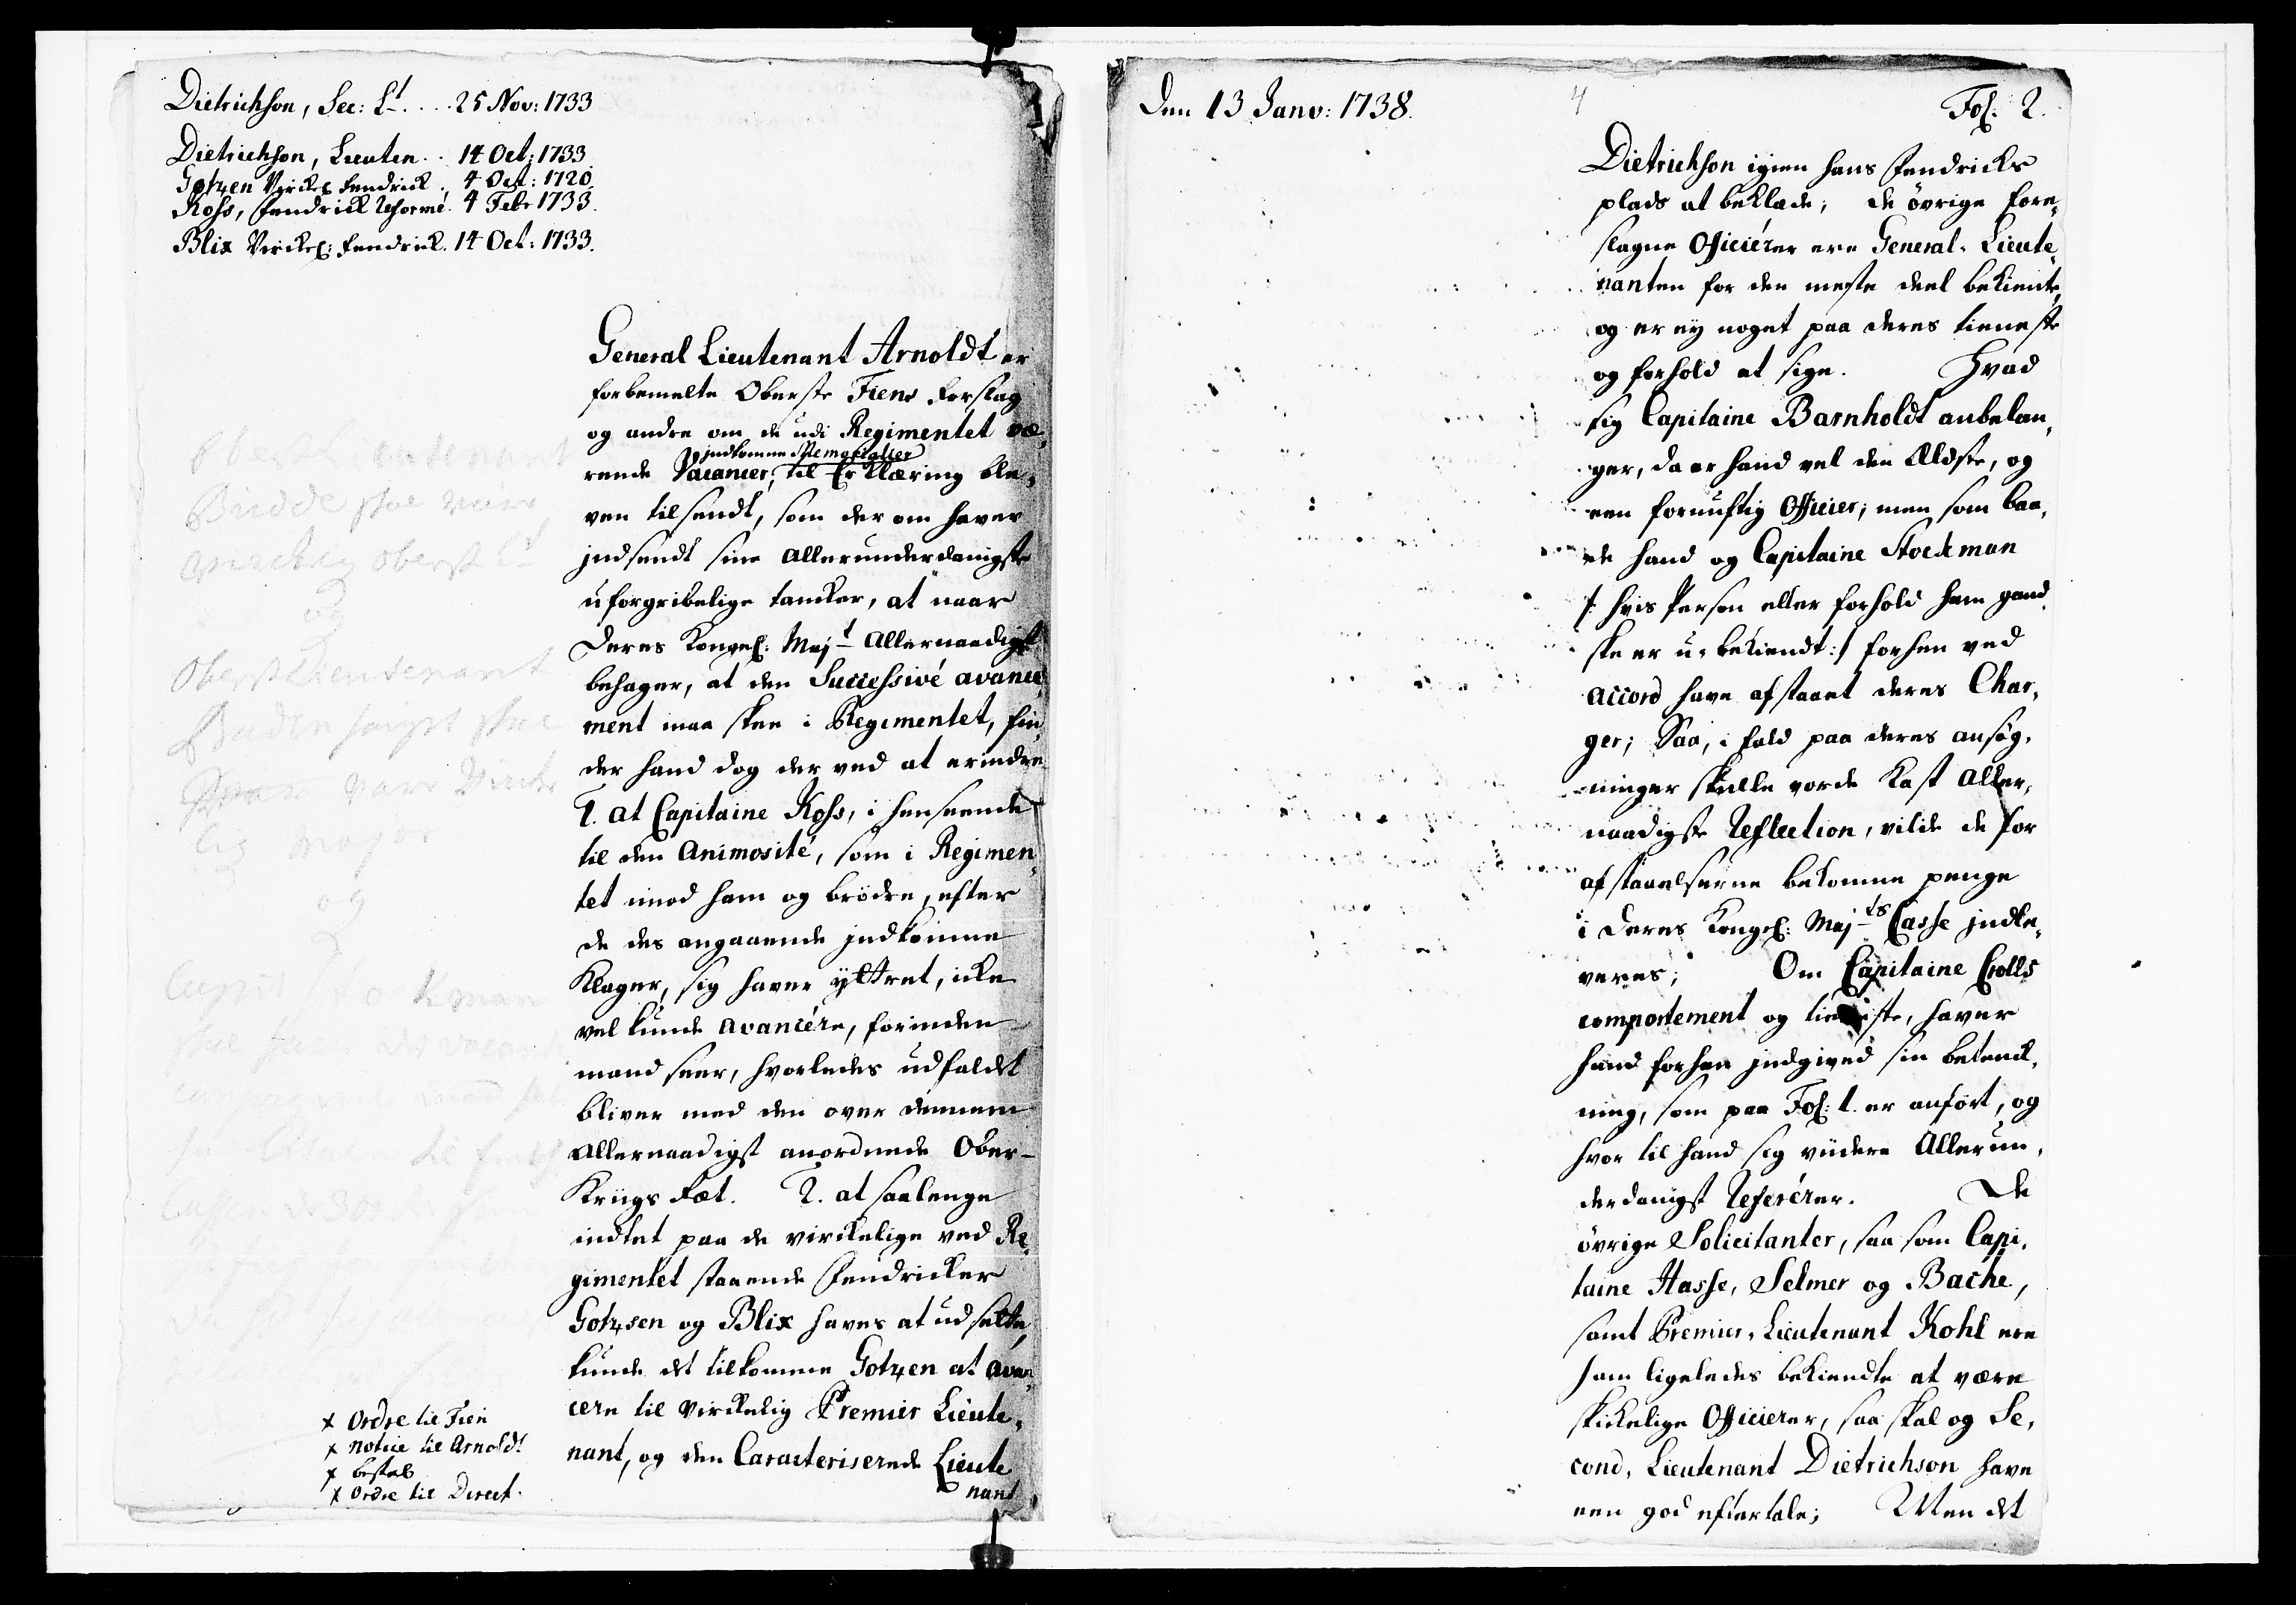 Dietrichson, Sec: Lt. . . . 25 Nov: 1733
Dietrichson, Lieuten . . 14 Oct: 1733
Gotzen Virckel: Fendrick . 4 Oct: 1720
Koss, Fendrick Reformé. 4 Febr 1733.
Blix Virckel: Fendrick. 14 Oct: 1733.
General Lieutenant Arnoldt er
forbemelte Oberste Fiens Forslag
og andre om de udi Regimentet væ,
indkomne Memorialier
rende Vacancer, til Erklæring ble,
ven tilsendt, som der om haver
indsendt sine Allerunderdanigste
uforgribelige tancker, at naar
Deres Kongel: Majt Allernaadigst
behager, at den Successivé avance,
ment maa skee i Regimentet, fin,
der hand dog der ved at erindre
1. at Capitaine Koss, i henseende
til den Animosité, som i Regimen,
tet imod ham og brödre, efter
de des angaaende indkomne
Klager, sig haver yttret, icke
vel kunde avancére, forinden
mand seer, hvorledes udfaldet
bliver med den over dennem
Allernaadigst anordnede Ober-
Kriigs Ræt. 2. at saalenge
indtet paa de virckelige ved Re,
gimentet staaende Fendricker
Gotzsen og Blix haves at udsette,
kunde det tilkomme Gotzen at avan,
cere til virckelig Premier Lieute,
nant, og den Caracteriserede Lieute
nant
Oberst Lieutenant
Budde skal være
virckelig Oberst Lt
og
Oberst Lieutenant
skal
være Virche
lig Major
og
x Ordre til Fien
x Notice til Arnoldt
x bestal
x Ordre til Direct.
Den 13 Janv: 1738.
4
Fol: 2.
Dietrichson igien hans Fendricks
plads at beklæde; de övrige fore,
slagne Officiérer ere General-Lieute,
nanten for den meste deel bekiente,
og er ey noget paa deres tieneste
og forhold at sige. Hvad
sig Capitaine Barnholdt anbelan,
ger, da er hand vel den Ældste, og
een fornuftig Officier; men som baa,
de hand og Capitaine Stockman
/: hvis Person eller forhold ham gand,
ske er u-bekiendt :/ forhen ved
accord have afstaaet deres Char,
ger; Saa, i fald paa deres ansög,
ninger skulle vorde kast Aller,
naadigste Reflection, vilde de for
afstaaelserne bekomne penge
i Deres Kongel: Majts Casse indle,
veres; Om Capitaine Crolls
comportement og tieneste, haver
hand forhen indgived sin betenck,
ning, som paa Fol: 1. er anfört, og
hvor til hand sig viidere Allerun,
derdanigst Referérer. De
övrige Solicitanter, saa som Capi,
taine Hasse, Selmer og Bache,
samt Premier-Lieutenant Kohl ere
ham ligeledes bekiendte at være
skickelige Officierer, saa skal og Se,
cond-Lieutenant Dietrichson have
een god eftertale; Men det